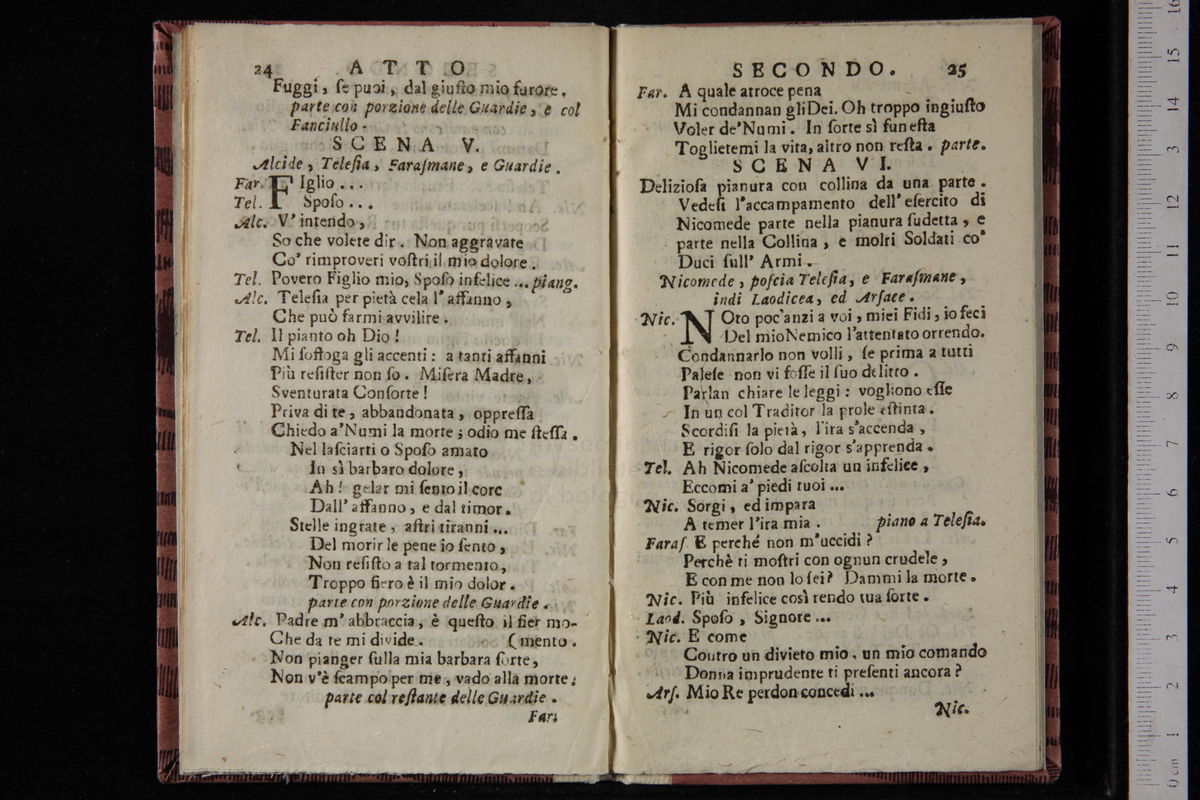 24 ATTO
Fuggi, ſe puoi, dal giuſto mio furore.
parte con porzione delle Guardie, e col
Fanciullo.
SCENA V.
Alcide, Teleſia, Faraſmane, e Guardie.
Far. FIglio...
Tel. Spoſo...
Alc. V' intendo,
So che volete dir. Non aggravate
Co' rimproveri voſtri il mio dolore.
Tel. Povero Figlio mio, Spoſo infelice... piang.
Alc. Teleſia per pietà cela l' affanno,
Che può farmi avvilire.
Tel. Il pianto oh Dio!
Mi ſoffoga gli accenti: a tanti affanni
Più reſiſter non ſo. Miſera Madre,
Sventurata Conſorte!
Priva di te, abbandonata, oppreſſa
Chiedo a'Numi la morte; odio me ſteſſa.
Nel laſciarti o Spoſo amato
In sì barbaro dolore,
Ah! gelar mi ſento il core
Dall' affanno, e dal timor.
Stelle ingrate, aſtri tiranni...
Del morir le pene io ſento,
Non reſiſto a tal tormento,
Troppo fiero è il mio dolor.
parte con porzione delle Guardie.
Alc. Padre m' abbraccia, è queſto il fier mo-
Che da te mi divide. (mento.
Non pianger ſulla mia barbara ſorte,
Non v'è ſcampo per me, vado alla morte;
parte col reſtante delle Guardie.
Far.
SECONDO. 25
Far. A quale atroce pena
Mi condannan gli Dei. Oh troppo ingiuſto
Voler de'Numi. In ſorte sì funeſta
Toglietemi la vita, altro non reſta. parte.
SCENA VI.
Delizioſa pianura con collina da una parte.
Vedeſi l'accampamento dell' eſercito di
Nicomede parte nella pianura ſudetta, e
parte nella Collina, e molti Soldati co'
Duci ſull' Armi.
Nicomede, poſcia Teleſia, e Faraſmane,
indi Laodicea, ed Arſace.
Nic. NOto poc'anzi a voi, miei Fidi, io feci
Del mio Nemico l'attentato orrendo.
Condannarlo non volli, ſe prima a tutti
Paleſe non vi foſſe il ſuo delitto.
Parlan chiare le leggi: vogliono eſſe
In un col Traditor la prole eſtinta.
Scordiſi la pietà, l'ira s'accenda,
E rigor ſolo dal rigor s'apprenda.
Tel. Ah Nicomede aſcolta un infelice,
Eccomi a' piedi tuoi...
Nic. Sorgi, ed impara
A temer l'ira mia. piano a Teleſia.
Faraſ E perché non m'uccidi?
Perchè ti moſtri con ognun crudele,
E con me non lo ſei? Dammi la morte.
Nic. Più infelice così rendo tua ſorte.
Laod. Spoſo, Signore...
Nic. E come
Contro un divieto mio, un mio comando
Donna imprudente ti preſenti ancora?
Arſ. Mio Re perdon concedi...
Nic.
0 cm 1 2 3 4 5 6 7 8 9 10 11 12 3 14 15 16